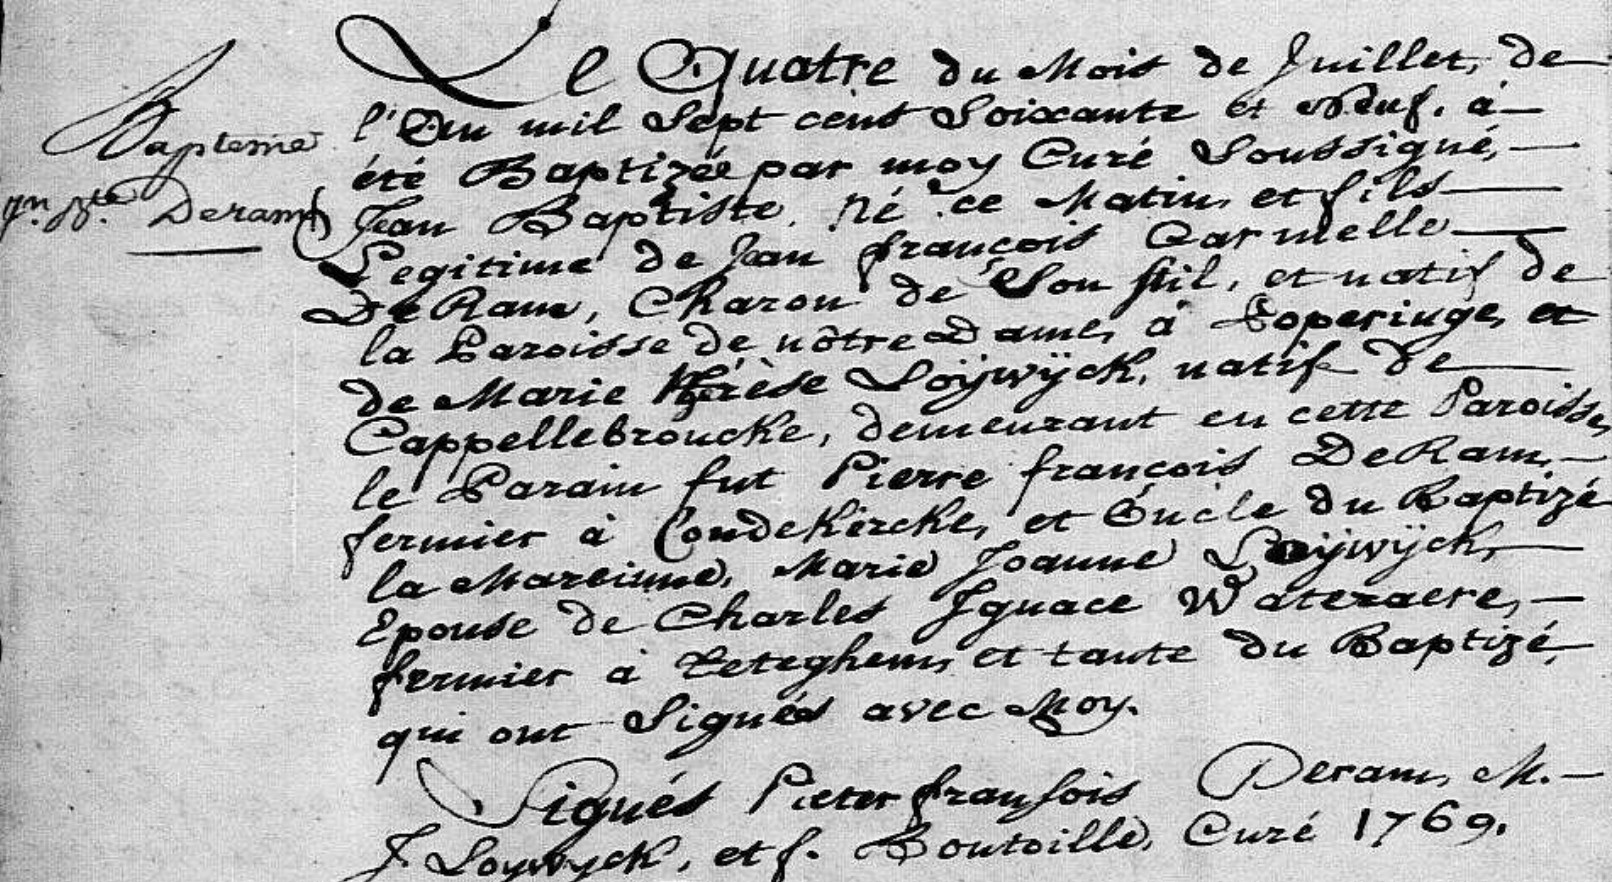 Bapteme
Jn. Bte. Deram
Le Quatre du Mois de Juillet, de
l'An mil Sept cent Soixante et Neuf. à
été Baptizée par moy Curé Soussigné,
Jean Baptiste, Né ce Matin, et fils
Legitime de Jean françois Carmelle
DeRam, Charon de Son stil, et natif de
la Paroisse de nôtre Dame, à Poperinge, et
de Marie Thérèse Loÿwÿck, natif de
Cappellebroucke, demeurant en cette Paroisse,
le Parain fut Pierre françois DeRam,
fermier à Coudekercke, et Oncle du Baptizé
la Mareinne, Marie Joanne Loÿwÿck,
Epouse de Charles Ignace Wateraere,
fermier à Teteghem, et tante du Baptizé,
qui ont Signés avec Moy.
Signés Pieter fransois Deram, M.
J Loywyck, et f. Boutoille, Curé 1769.